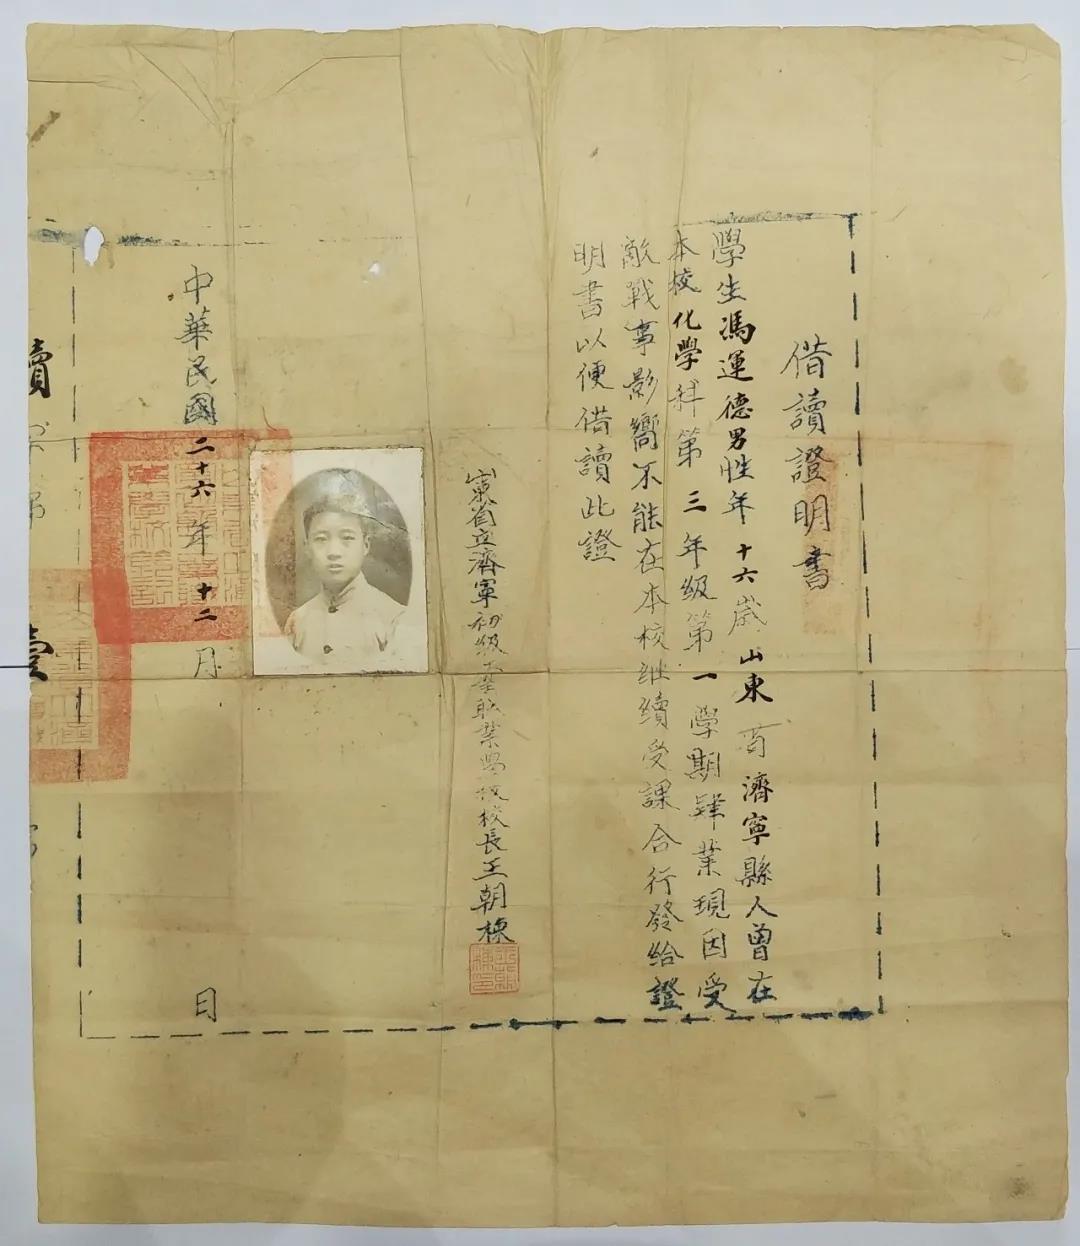 借讀證明書
學生馮運德男性年十六歲山東省濟寧縣人曾在
本校化學科第三年級第一學期肄業現因受
敵戰事影嚮不能在本校継續受課合行發給證
明書以便借讀此證
東省立濟寧初級工業職業學校校長王朝棟
中華民國二十六年十二月日
讀
壹